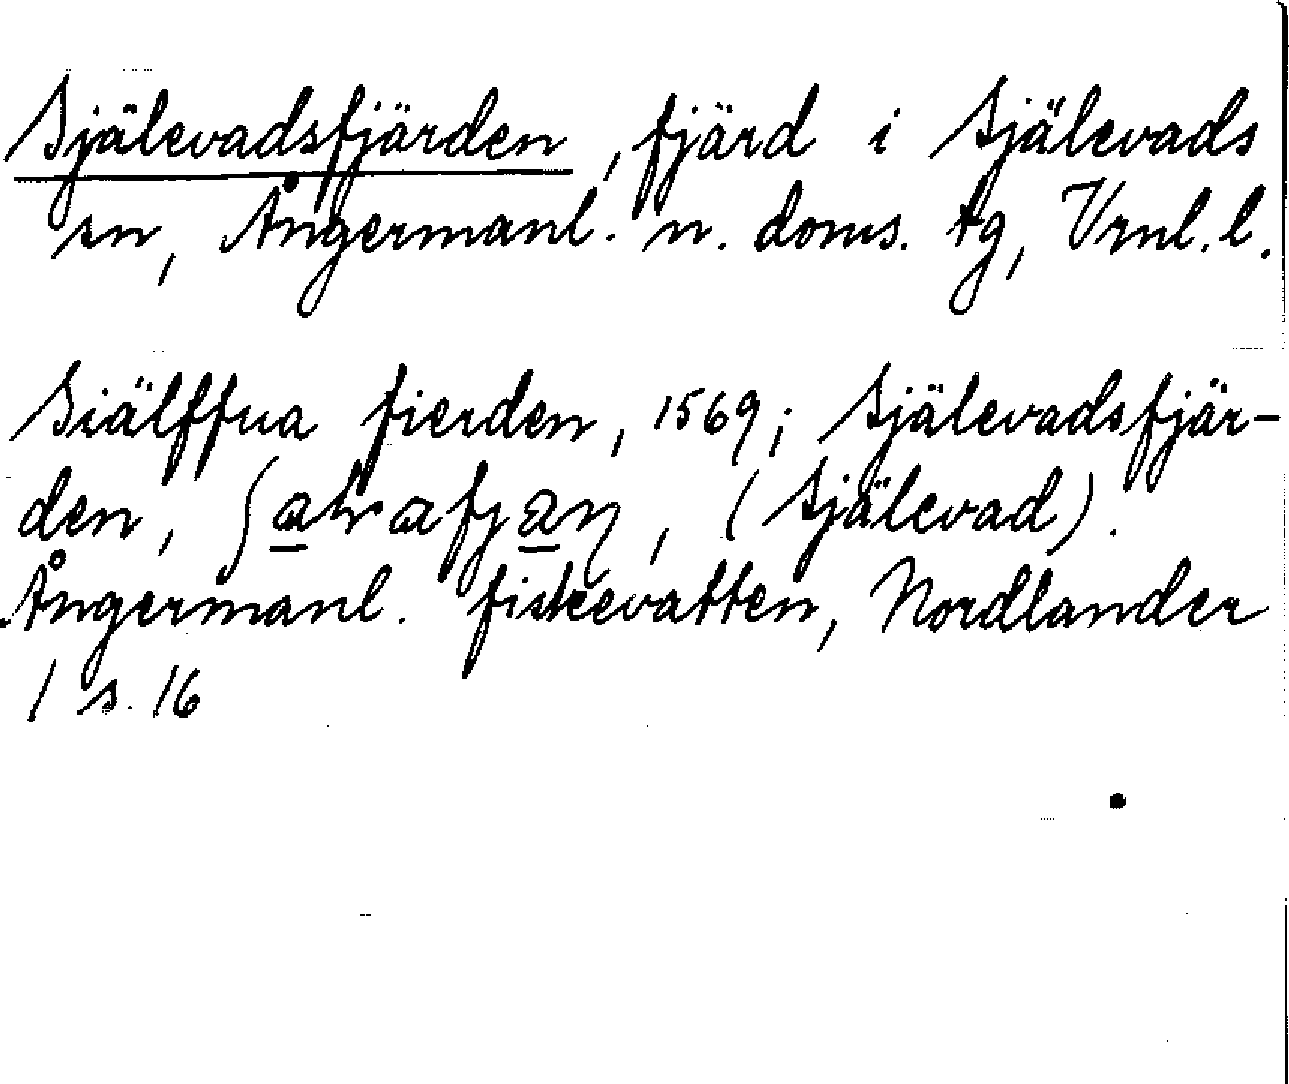 Själevadsfjärden, fjärd i Själevads
sn, Ångermanl. n. doms. tg, Vrnl. l.
Siälffua fierden, 1569; Själevadsfjär-
den, (Själevad).
Ångermanl. fiskevatten, Nordlander
1 s. 16